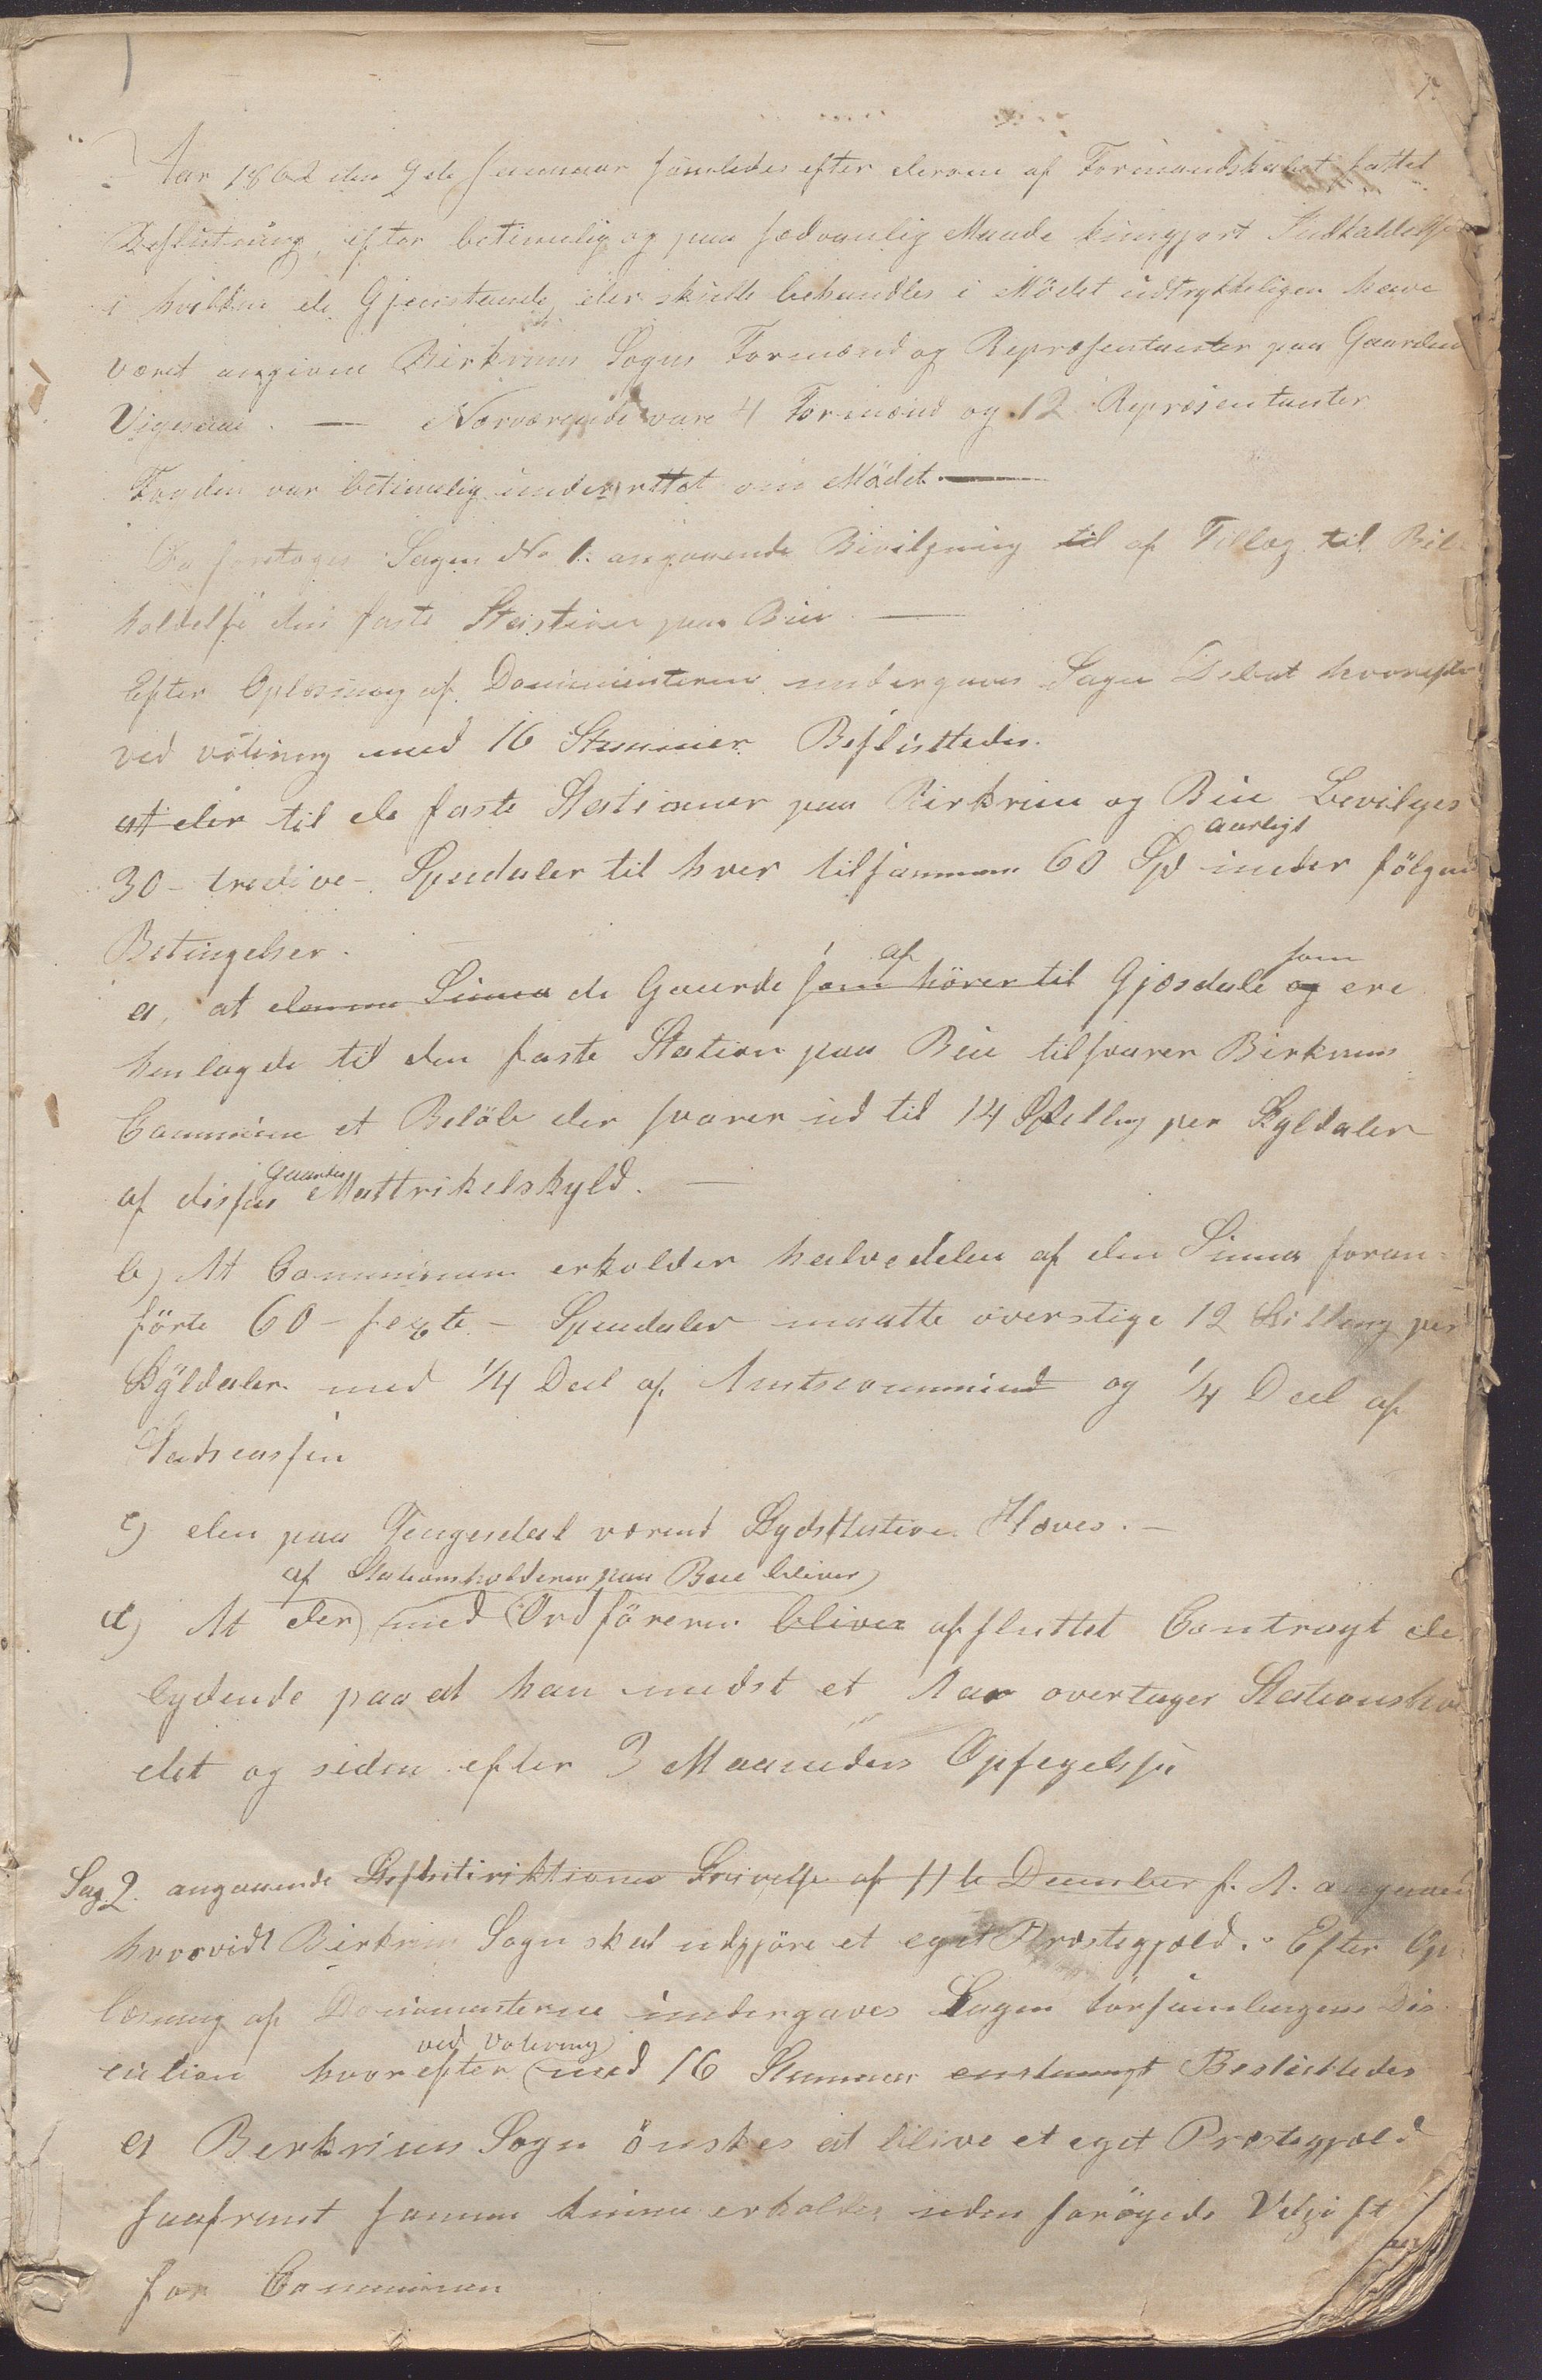 1.
Aar 1862 den 9de Januar samledes efter derom af Formandskabet fattet
Beslutning, efter betimelig og paa sædvanlig Maade kundgjort Indkaldelse
i hvilken de Gjenstande, der skulle behandles i Mødet udtrykkeligen have
været angivne Birkrims Sogns Formænd og Repræsentanter paa Gaarden
Vigesaae. — Nærværende vare 4 Formænd og 12 Repræsentanter
Fogden var betimelig underrettet om Mødet. —
Da foretoges Sagen No 1. angaaende Bevilgning til af Tillæg til Bi-
holdelse den faste Station paa Bue —
Efter Oplæsning af Documenterne undergaves Sagen Debat hvorefter
ved votering med 16 Stemmer Besluttedes.
at der til de faste Stationer paa Birkrim og Bue Bevilges
30 - tredive - Speedaler til hver tilsammen 60 Spd aarligt under følgende
Betingelser.
a, at denne Summa de Gaarde som hører til af Gjesdale og som ere
henlagde til den faste Station paa Bue tilsvarer Birkrims
Commune et Beløb der svarer ud til 14 Skilling per Skyldaler
af disses Gaardes Mattrikelskyld. —
b) At Communen erholder halvedelen af den Summa foran-
førte 60 - sexte - Speedaler maatte overstige 12 Skilling per
Skyldaler med 1/4 Deel af Amtscommunen og 1/4 Deel af
Statscassen
c) den paa Tengesdal værend Skydsstation Hæves. —
af Stationsholderen paa Bue bliver
d) At der med Ordføreren bliver afsluttet Contragt de
lydende paa at han mindst et Aar overtager Stationshol
det og siden efter 3 Maaneders Opsigelse
Sag 2. angaaende Skrivelse af 11te December f. A. angaaen
hvorvidt Birkrim Sogn skal udgjøre et eget Præstegjæld. Efter Op-
læsning af Documenterne undergaves Sagen forsamlingens Dis-
cution hvorefter ved Votering med 16 Stemmer enstemmigt Besluttedes
a Berkrims Sogn ønskes at blive et eget Præstegjæld
saafremt samme kunne erholdes uden forøgede Udgift
for Communen